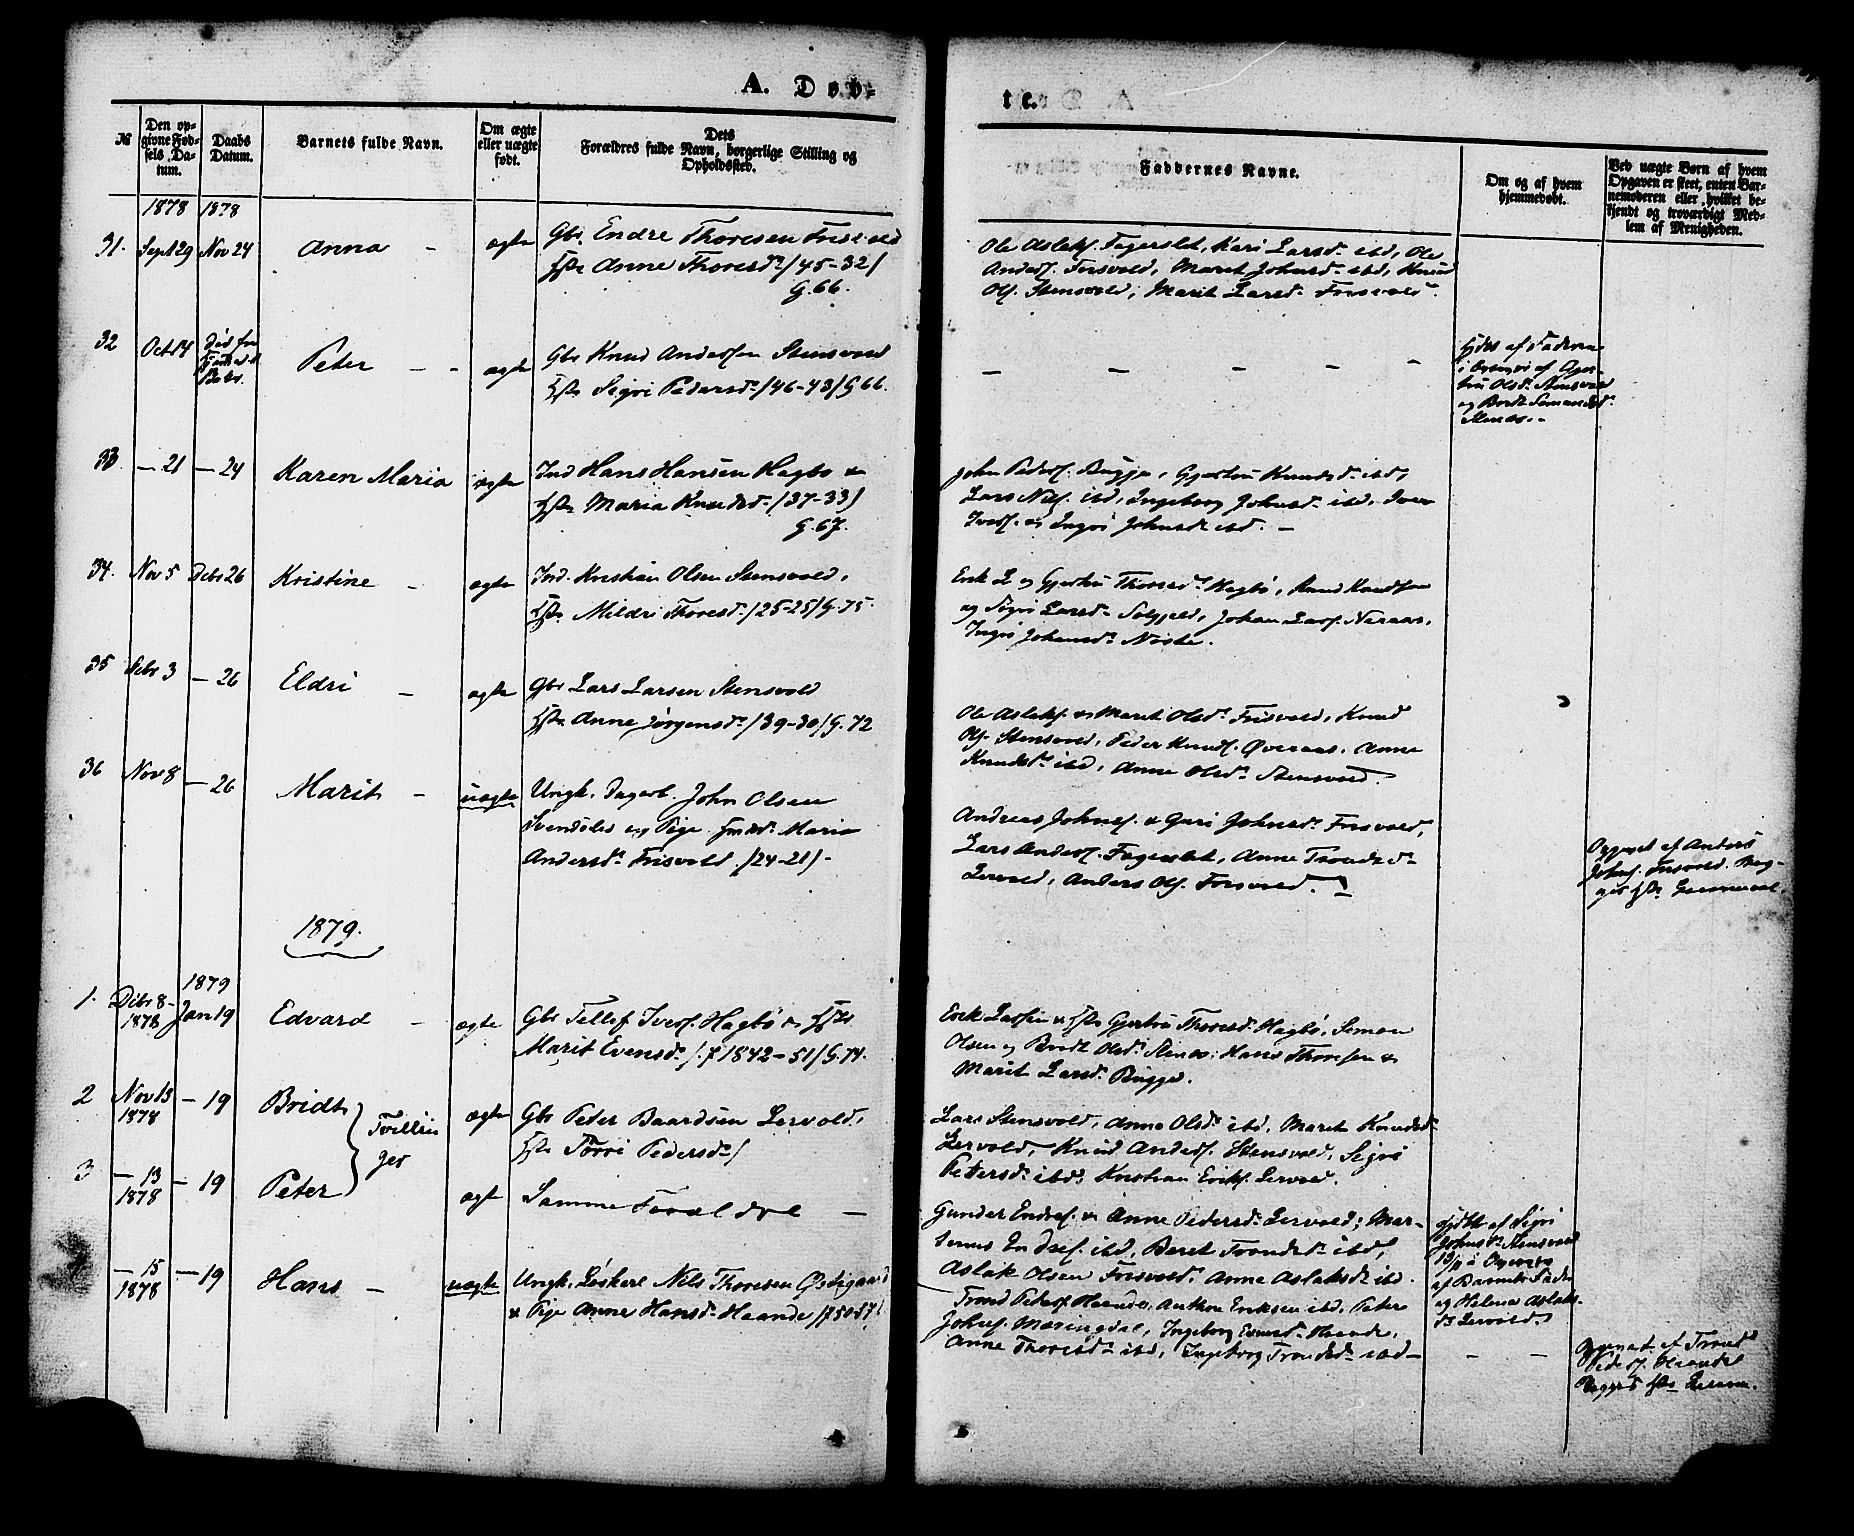 A. Døb-
te.
№
Den op-
givne Fød-
sels Da-
tum.
Daabs
Datum.
Barnets fulde Navn.
Om ægte
eller uægte
født.
Dets
Forældres fulde Navn, borgerlige Stilling og
Opholdssted.
Faddernes Navne.
Om og af hvem
hjemmedøbt.
Ved uægte Børn af hvem
Opgaven er skeet, enten Bar-
nemoderen eller hvilket be-
kjendt og troværdigt Med-
lem af Menigheden.
1878 1878
31. Sept 29 Nov 24 Anna - ægte
Gbr Endre Thoresen Frisvold
Hst Anne Thoresdr /45-32/
G. 66.
Ole Aslaks. Fagerslet, Kari Larsdr ibd, Ole
Anders. Frisvold, Marit Johnsdr ibd, Knud
Ols. Stensvold, Marit Larsdr Frisvold.
32 Oct 14 Peter - - ægte
Gbr Knud Andersen Stensvold
Hst Sigri Pedersdr /46-43/ G 66.
- - - -
hjdøbt af Faderen
Olsd. Stensvold
33 - 21 - 24 Karen Maria ægte
Ind Hans Hansen Hagbø &
Hst Maria Knudsdr /37-33/
G. 67.
John Peders. Bugge, Gjertru Knudsdr ibd,
Lars Nils. ibd, Ingeborg Johnsdr ibd, Iver
Ivers. & Ingri Johnsdr ibd. -
34. Nov 5 Debr 26 Kristine - ægte
Ind. Kristian Olsen Stensvold,
Hst Mildri Thoresdr /25-25/ G. 75.
Erik L og Gjertru Thoresdr Hagbø, Knud Knudsen
og Sigri Larsdr Solgjeld, Johan Lars. Neraas,
Ingri Johansdr Nøste.
35 Debr 3 - 26 Eldri - ægte
Gbr Lars Larsen Stensvold
Hst Anne Jørgensdr /39-30/ G. 72
Ole Aslaks. & Marit Olsdr Frisvold, Knud
Ols. Stensvold, Peder Knuds. Øveraas, Anne
Knudsdr ibd, Anne Olsdr Stensvold.
36 Nov 8 - 26 Marit - uægte
Ungk. Dagarb. John Olsen
Svendslid og Pige Maria
Andersdr Frisvold /24-21/-
Andreas Johns. & Guri Johnsdr Frisvold,
Lars Anders. Fagerslet, Anne Trondsdr
Lervold, Anders Ols. Frisvold.
Opgivet af Anders
Johns. Frisvold.
1879.
1879
1. Debr 8- 1878 Jan 19 Edvard - ægte
Gbr Tellef Ivers. Hagbø & Hst
Marit Evensdr /f 1842-51/ G. 74.
Erik Larsen & Hst Gjertru Thoresdr Hagbø, Simon
Olsen og Brodt Olsdr Stenes, Hans Thoresen &
Marit Larsdr Bugge.
2 Nov 13 1878 - 19 Bridt Tvillin- ægte
ger
Gbr Peter Baardsen Lervold,
Hst Torri Pedersdr /
Lars Stensvold, Anne Olsdr ibd, Marit Knudsdr
Lervold, Knud Anders. Stensvold, Sigri
Petersdr ibd, Kristian Eriks. Lervold.
3 - 13 1878 - 19 Peter ægte
Samme Forældre -
Gunder Endres. & Anne Pedersdr Lervold, Mar-
Endres. ibd, Beret Trondsdr ibd,
Aslak Olsen Frisvold, Anne Aslaksdr ibd.
hjdøbt af Sigri
Johnsdr Stensvold
af Barnets Fader
og Helena Aslaks-
dr Lervold
- 15 1878 - 19 Hans - uægte
Ungk. Løskerl Nils Thoresen Østigaard
& Pige Anne Hansdr Haande /f 50-57/.
Trond Peders. Haande, Anthon Eriksen ibd, Peter
Johns. Maringdal, Ingeborg Evensdr Haande,
Anne Thoresdr ibd, Ingeborg Trondsdr ibd -
- -
Opgivet af Trond
Peders. Haande